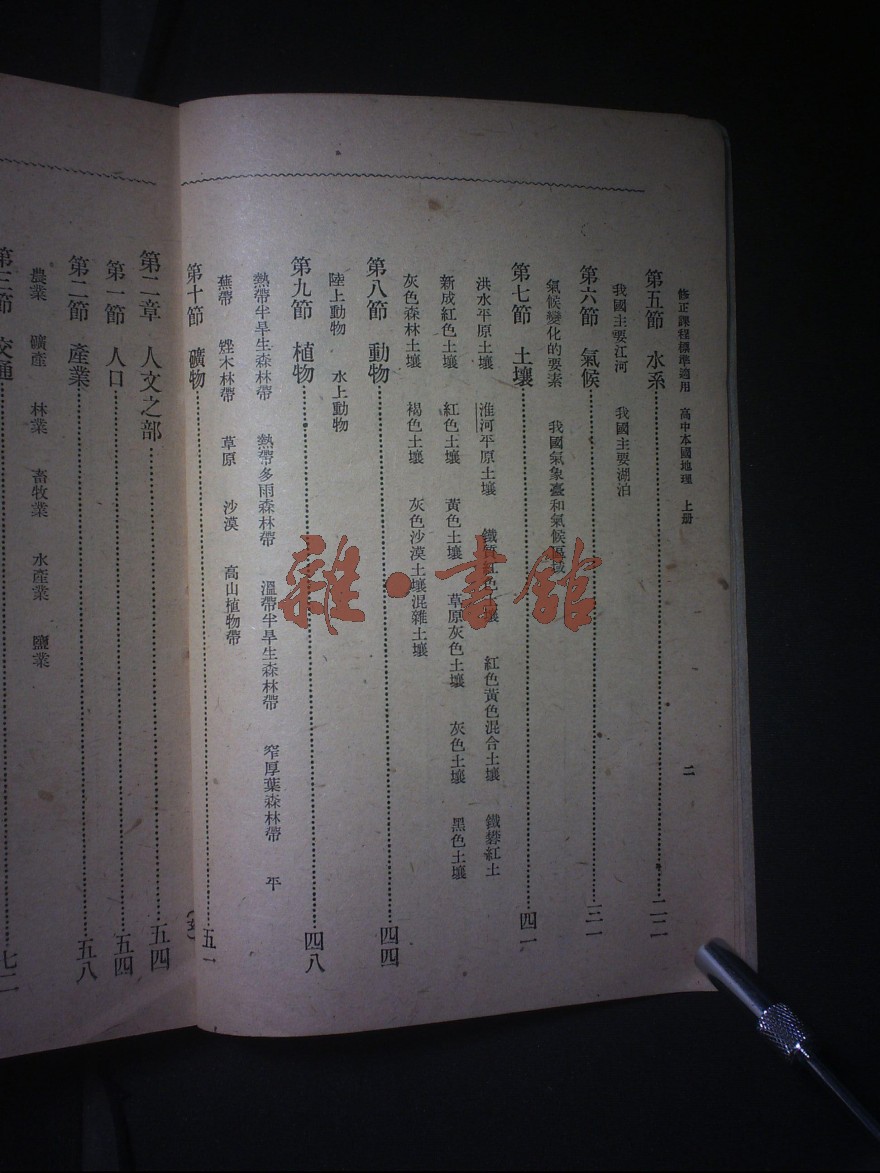 修正課程標準適用　高中本國地理　上册
二
第五節　水系……二二
我國主要江河　我國主要湖泊
第六節　氣候……三一
氣候變化的要素　我國氣象臺和氣候區域
第七節　土壤……四一
洪水平原土壤　淮河平原土壤　鐵質紅色土壤　紅色黃色混合土壤　鐵礬紅土
新成紅色土壤　紅色土壤　黃色土壤　草原灰色土壤　灰色土壤　黑色土壤
灰色森林土壤　褐色土壤　灰色沙漠土壤混雜土壤
第八節　動物……四四
陸上動物　水上動物
第九節　植物……四八
熱帶半旱生森林帶　熱帶多雨森林帶　溫帶半旱生森林帶　窄厚葉森林帶　平
蕪帶　矮木林帶　草原　沙漠　高山植物帶
第十節　礦物……五一
第二章　人文之部……五四
第一節　人口……五四
第二節　產業……五八
農業　礦產　林業　畜牧業　水產業　鹽業
第三節　交通……七二
雜·書館